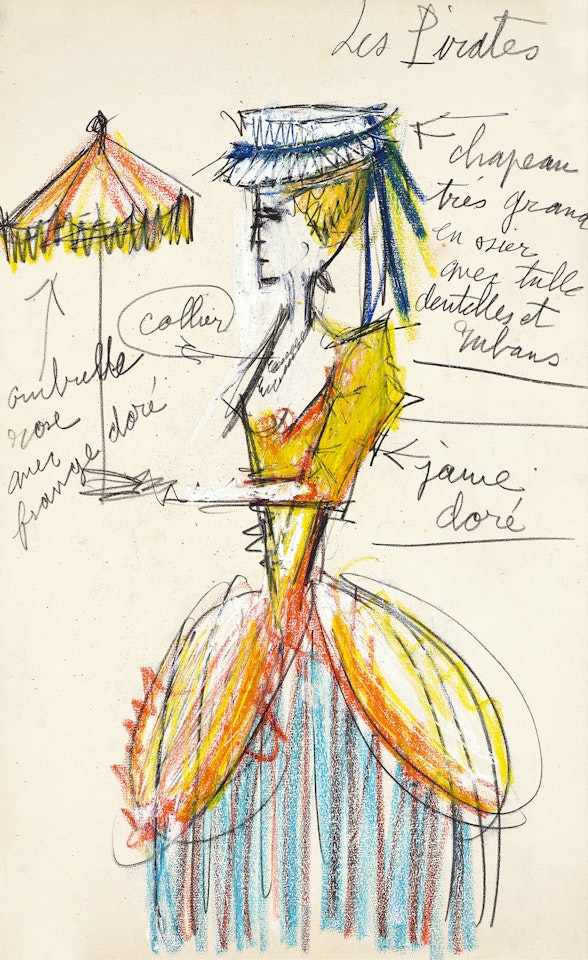 Les Pirates
chapeau
très grand
en osier
avec tulle
dentelles et
rubans
collier
ombrelle
rose
avec
frange doré
jaune
doré